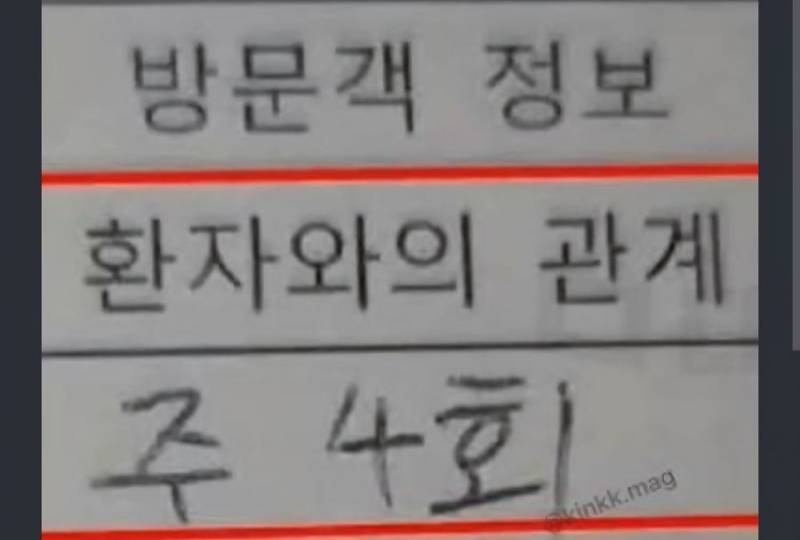 방문객 정보
환자와의 관계
주 4회
@kinkk.mag